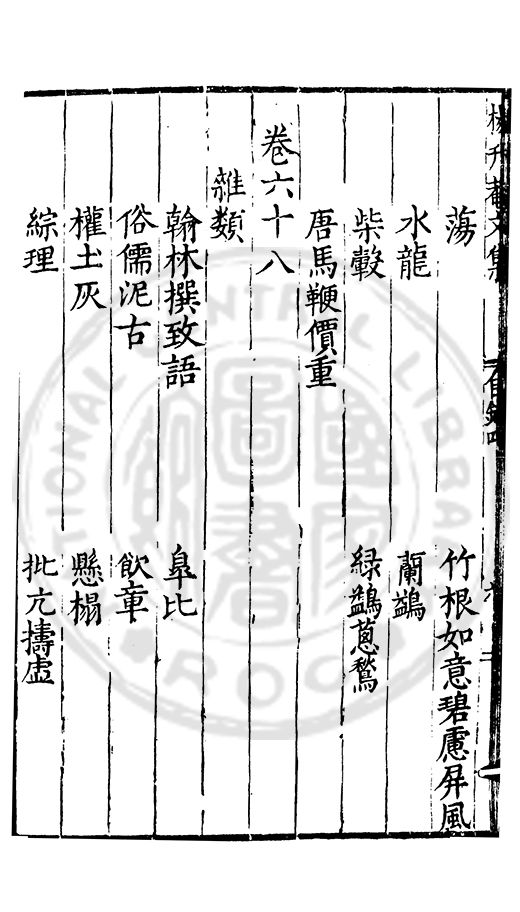 楊升菴文集 目錄
蕩 竹根如意碧慮屏風
水龍 蘭鷁
柴轂 綠鷁蔥鶖
唐馬鞭價重
卷六十八
雜類
翰林撰致語 皐比
俗儒泥古 飲章
權土灰 懸榻
綜理 批亢擣虛
NATIONAL CENTRAL LIBRARY